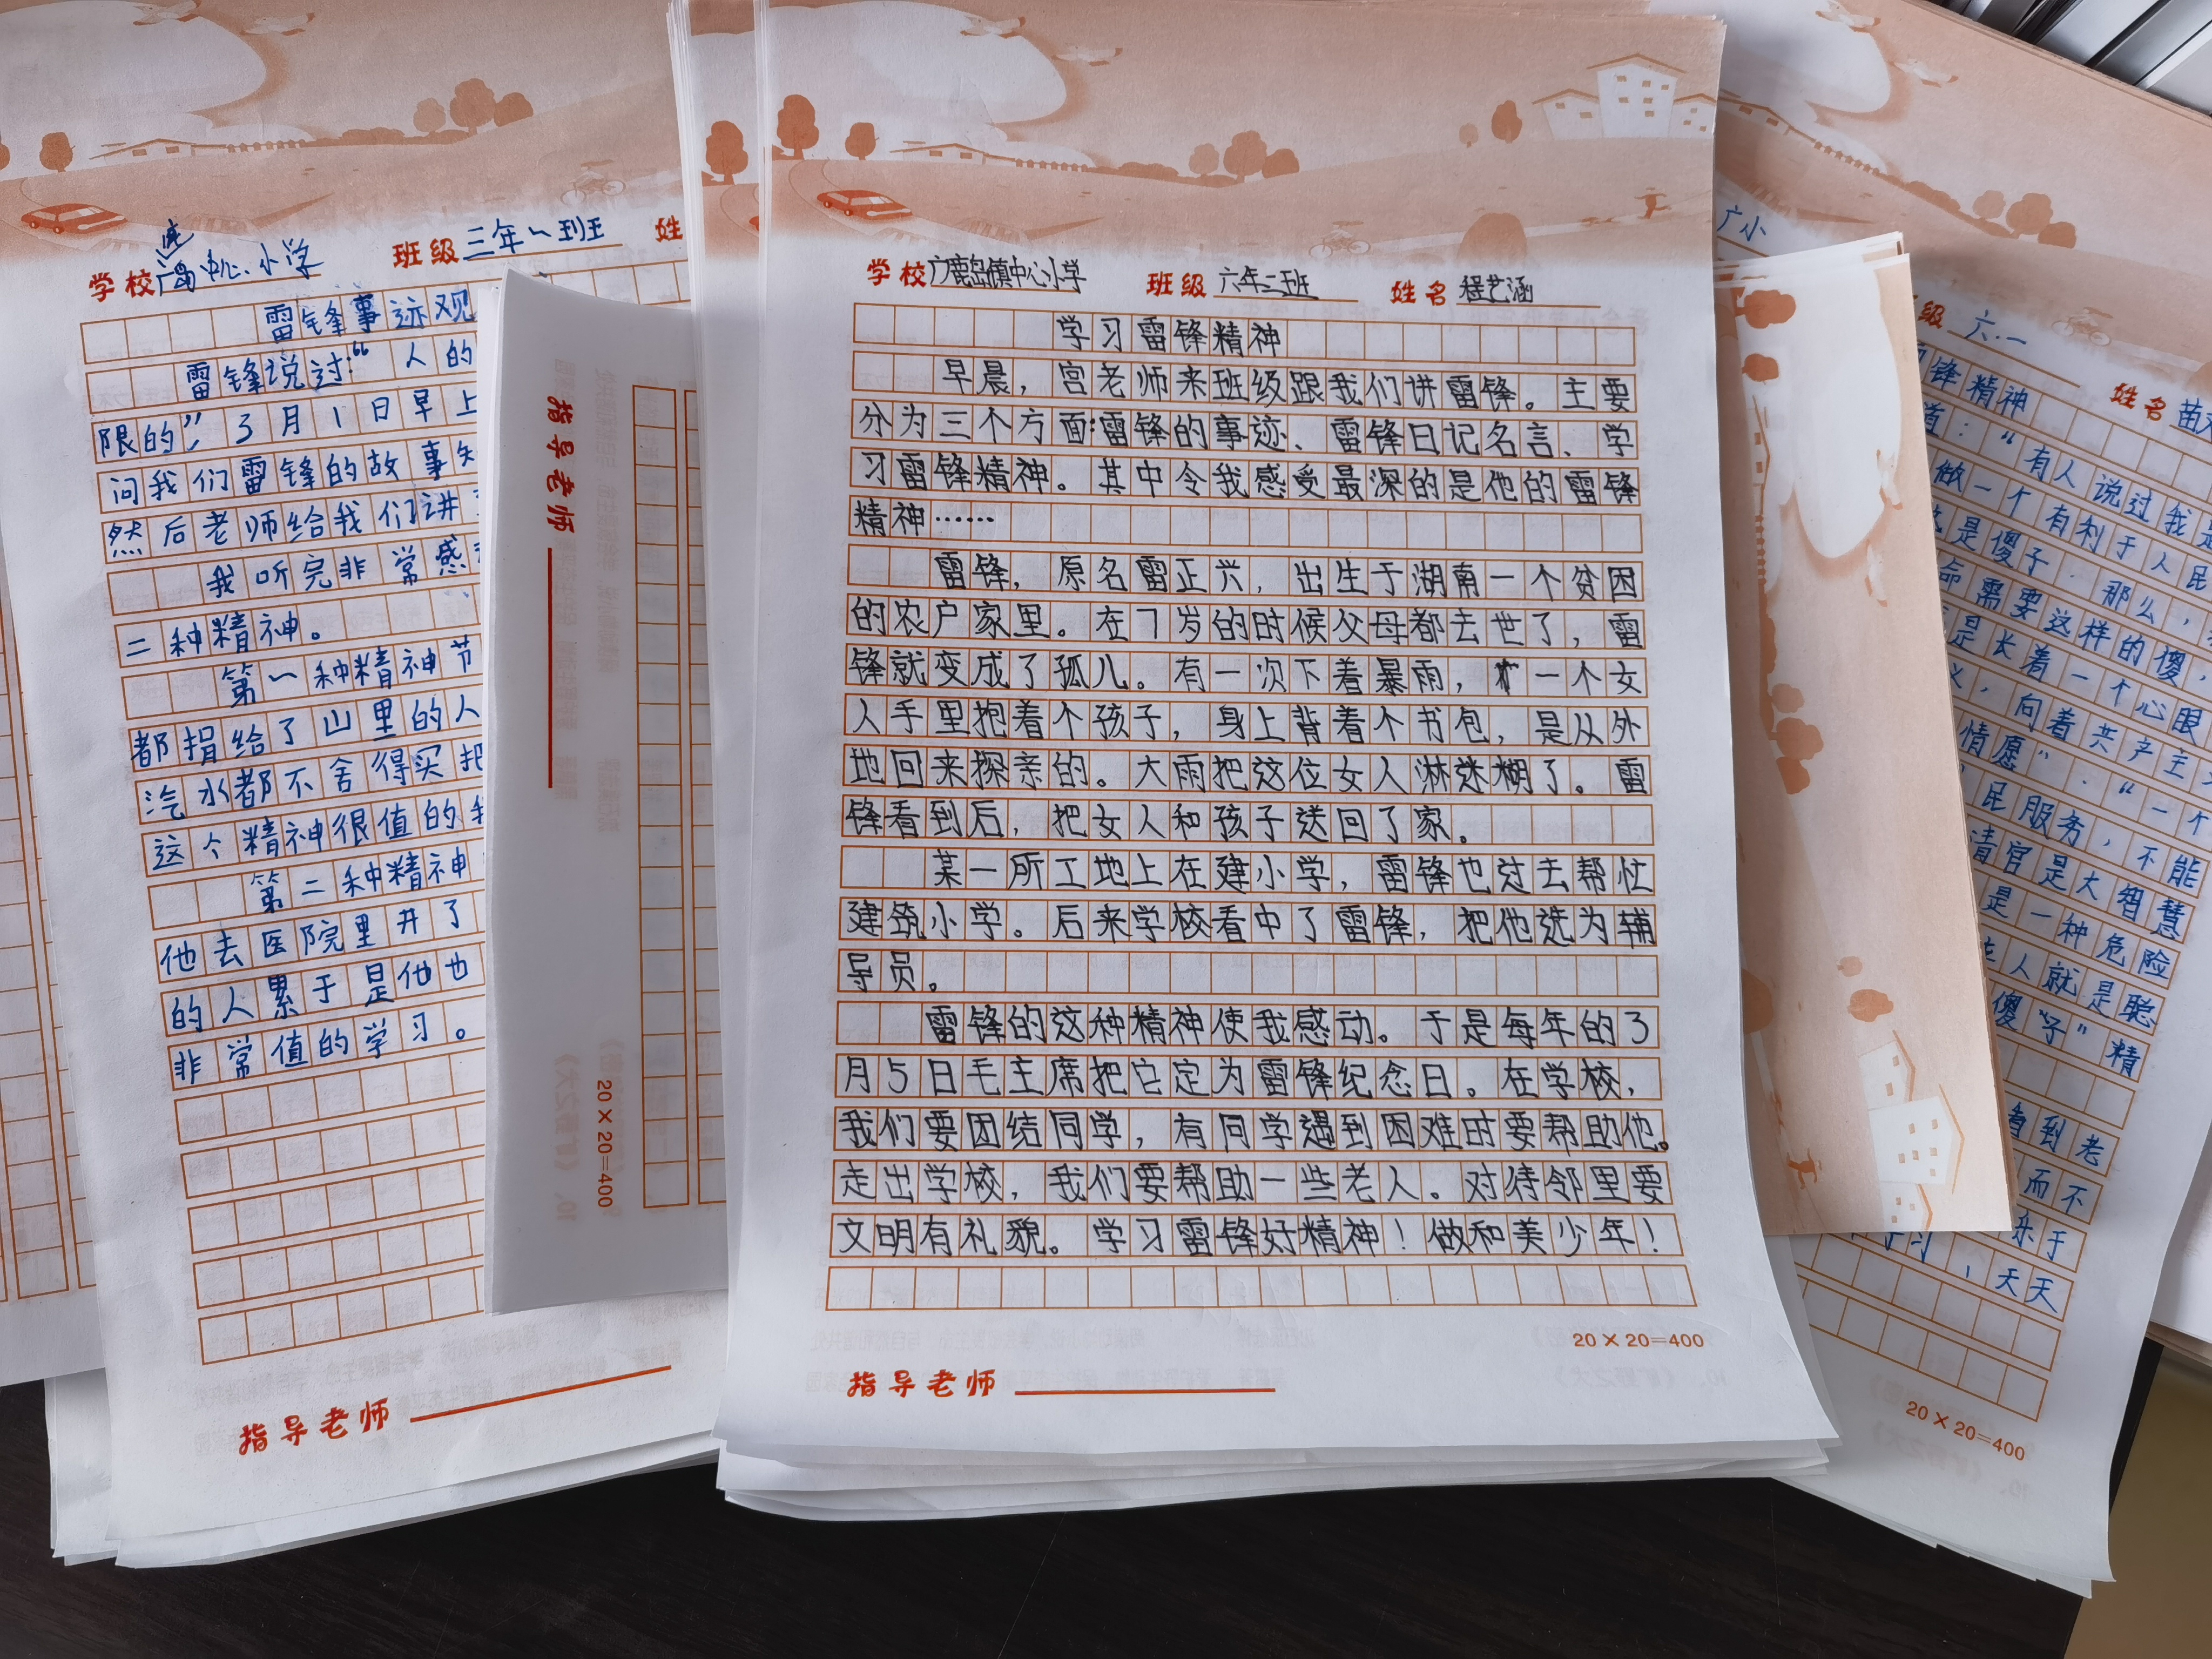 学校 广鹿岛中心小学 班级 三年一班 姓
雷锋事迹观
雷锋说过:“人的
限的”,3月1日早上
问我们雷锋的故事知
然后老师给我们讲
我听完非常感
二种精神。
第一种精神节
都捐给了山里的人
汽水都不舍得买把
这个精神很值的我
第二种精神
他去医院里
的人累于是他也
非常值的学习。
指导老师
指导老师
20×20=400
学校 广鹿岛镇中心小学 班级 六年二班 姓名 程艺涵
学习雷锋精神
早晨，宫老师来班级跟我们讲雷锋。主要
分为三个方面:雷锋的事迹、雷锋日记名言、学
习雷锋精神。其中令我感受最深的是他的雷锋
精神……
雷锋，原名雷正兴，出生于湖南一个贫困
的农户家里。在7岁的时候父母都去世了，雷
锋就变成了孤儿。有一次下着暴雨，一个女
人手里抱着个孩子，身上背着个书包，是从外
地回来探亲的。大雨把这位女人淋迷糊了。雷
锋看到后，把女人和孩子送回了家。
某一所工地上在建小学，雷锋也过去帮忙
建筑小学。后来学校看中了雷锋，把他选为辅
导员。
雷锋的这种精神使我感动。于是每年的3
月5日毛主席把它定为雷锋纪念日。在学校，
我们要团结同学，有同学遇到困难时要帮助他。
走出学校，我们要帮助一些老人。对待邻里要
文明有礼貌。学习雷锋好精神！做和美少年！
20×20=400
指导老师
广小
级 六.一 姓名 苗
锋精神
道：“有人说过我是
做一个有利于人民
是傻子.那么，
命需要这样的傻，
是长着一个心眼
义，向着共产主
情愿”.“一个
民服务，不能
清官是大智慧
是一种危险
人就是聪
傻“子”精
看到老
而不
乐于
学习，天天
20×20=400